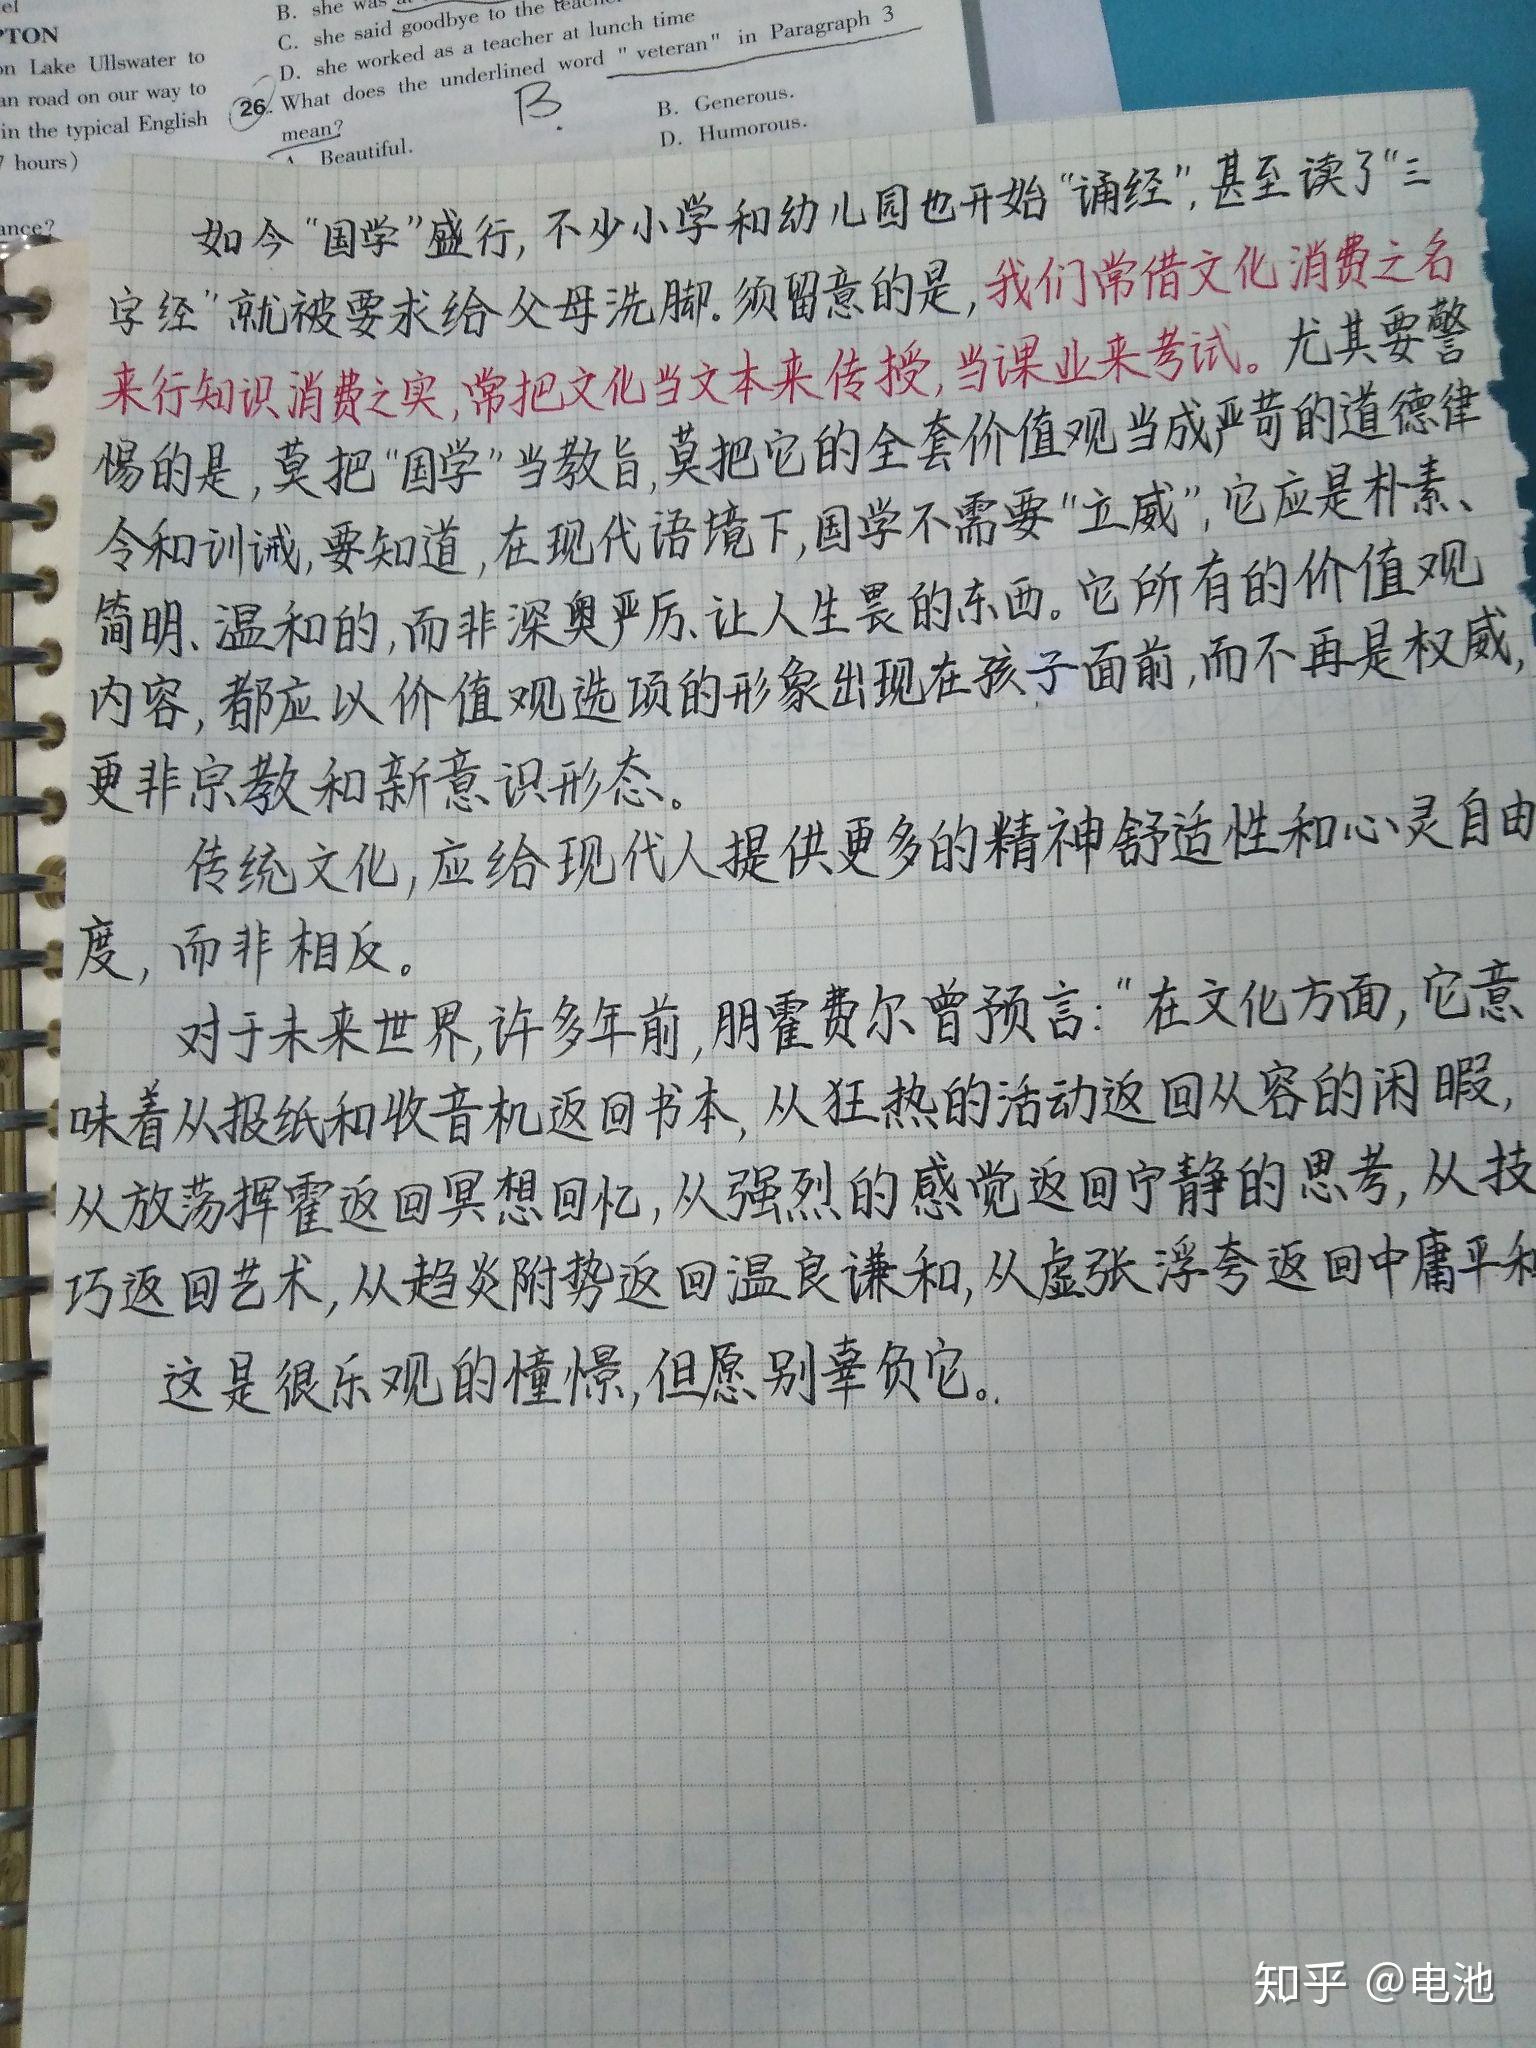 el
B. she was a
PTON
C. she said goodbye to the teacher
on Lake Ullswater to
D. she worked as a teacher at lunch time
an road on our way to
26. What does the underlined word "veteran" in Paragraph 3
in the typical English
mean?
B.
B. Generous.
7 hours)
A. Beautiful.
D. Humorous.
ance?
如今“国学”盛行,不少小学和幼儿园也开始“诵经”,甚至读了“三
字经”就被要求给父母洗脚。须留意的是,我们常借文化消费之名
来行知识消费之实,常把文化当文本来传授,当课业来考试。尤其要警
惕的是,莫把“国学”当教旨,莫把它的全套价值观当成严苛的道德律
令和训诫,要知道,在现代语境下,国学不需要“立威”,它应是朴素、
简明、温和的,而非深奥严厉、让人生畏的东西。它所有的价值观
内容,都应以价值观选项的形象出现在孩子面前,而不再是权威,
更非宗教和新意识形态。
传统文化,应给现代人提供更多的精神舒适性和心灵自由
度,而非相反。
对于未来世界,许多年前,朋霍费尔曾预言:“在文化方面,它意
味着从报纸和收音机返回书本,从狂热的活动返回从容的闲暇,
从放荡挥霍返回冥想回忆,从强烈的感觉返回宁静的思考,从技
巧返回艺术,从趋炎附势返回温良谦和,从虚张浮夸返回中庸平和
这是很乐观的憧憬,但愿别辜负它。
知乎 @电池